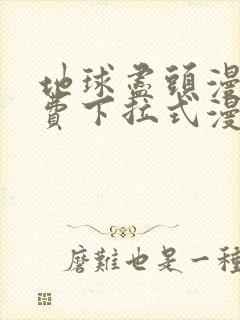 地球盡頭漫
費下拉式漫
磨難也是一種